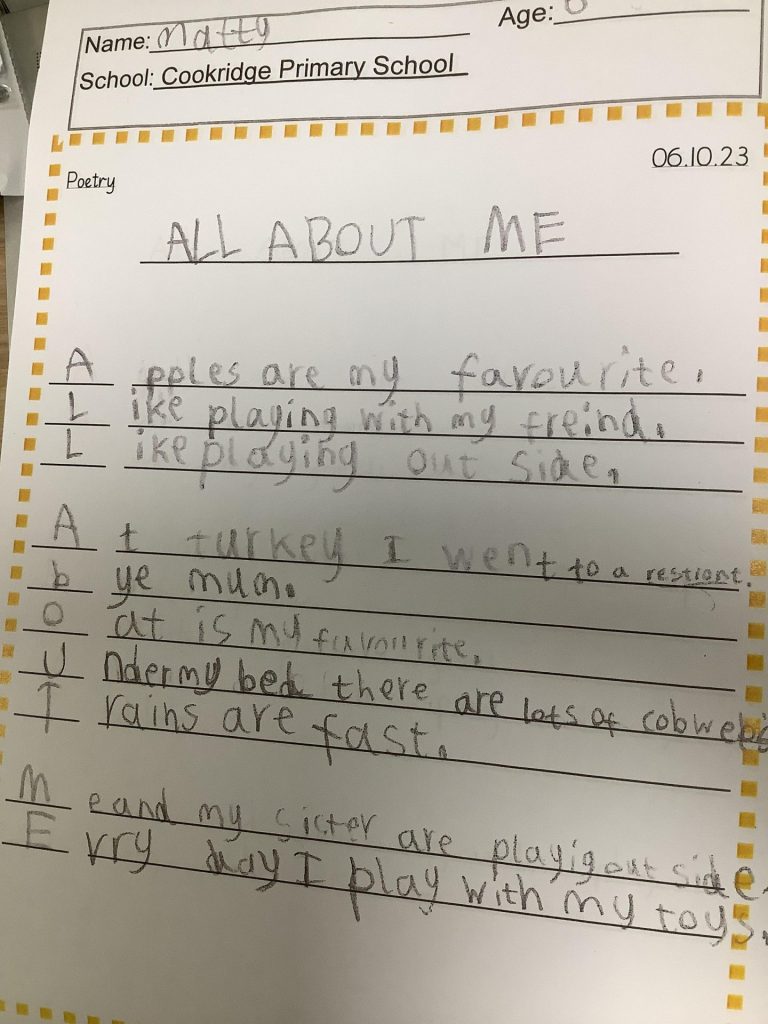 Name: Matty Age:
School: Cookridge Primary School
06.10.23
Poetry
ALL ABOUT ME
A pples are my favourite.
L ike playing with my freind.
L ike playing out side.
A t turkey I went to a restiont.
b ye mum.
O at is my
U nder my bed there are lots of cobwebs
T rains are fast.
M e and my sicter are playig out side.
E vry day I play with my toys.